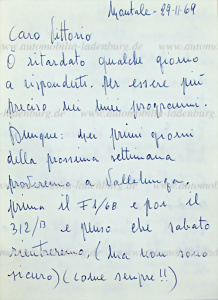 Natale - 29-11-69
Caro Vittorio
Ò ritardato qualche giorno
a risponderti. per essere più
preciso nei miei programmi.
Dunque: nei primi giorni
della prossima settimana
proveremo a Vallelunga
prima il F1/68 e poi il
312/B e penso che sabato
rientreremo, (ma non sono
sicuro) (come sempre!!)
www.automobilia-ladenburg.de